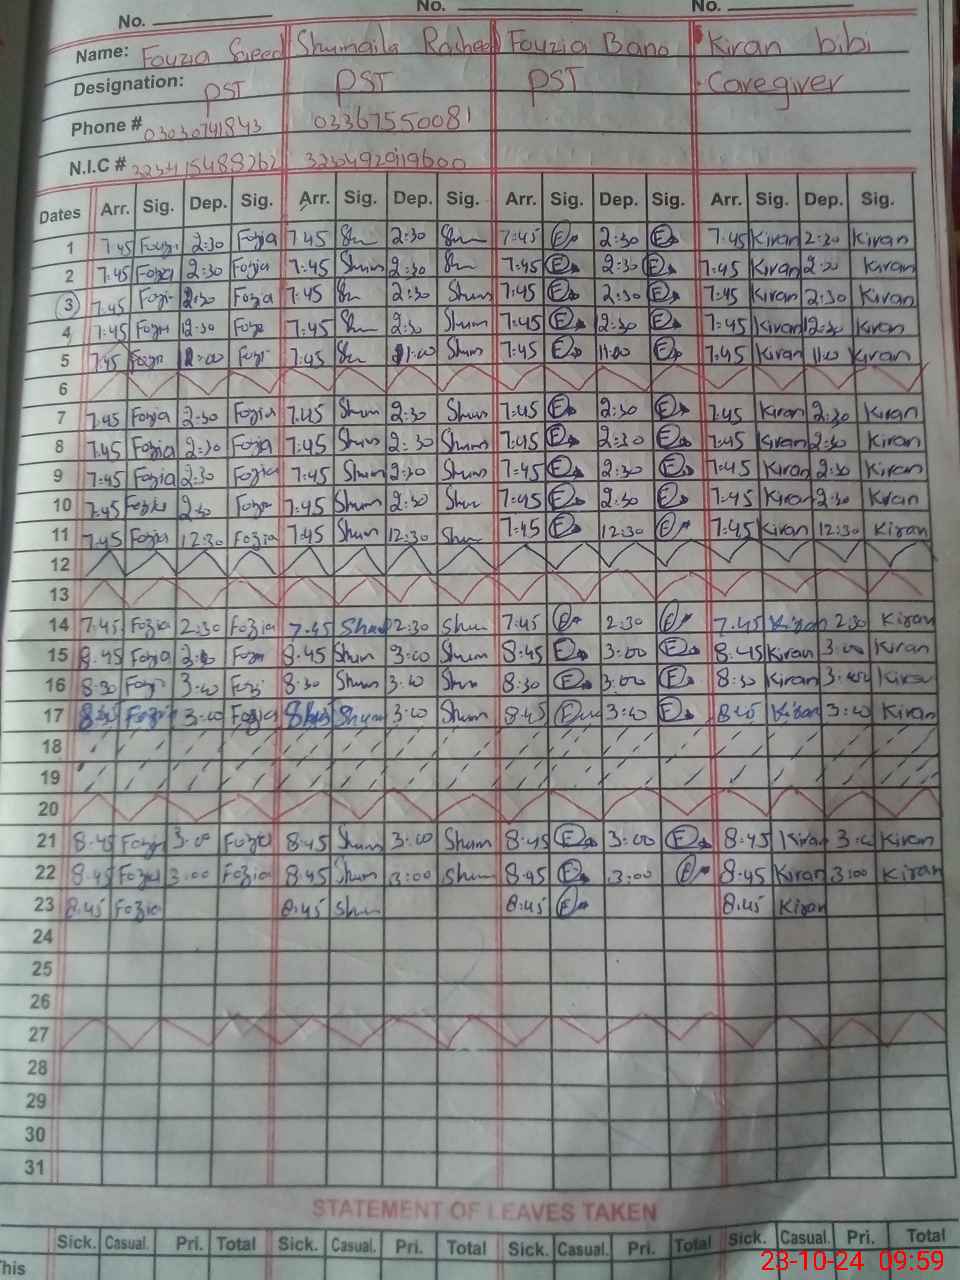 No. No. No.
Name: Fouzia Saeed Shumaila Rasheed Fouzia Bano Kiran bibi
Designation: PST PST PST Caregiver
Phone # 03030741843 03367550081
N.I.C #
Dates Arr. Sig. Dep. Sig. Arr. Sig. Dep. Sig. Arr. Sig. Dep. Sig. Arr. Sig. Dep. Sig.
1 7.45 Fozia 2:30 Fozia 7.45 Shu 2:30 Shu 7:45 E 2:30 E 7.45 Kiran 2:30 Kiran
2 7.45 Fozia 2:30 Fozia 7:45 Shum 2:30 Shu 7:45 E 2:30 E 7:45 Kiran Kiran
3 7.45 Fozi 2:30 Fozia 7:45 Shu 2:30 Shum 7:45 E 2:30 E 7:45 Kiran 2:30 Kiran
4 7:45 Fozia 12:30 7:45 Shu 2:30 Shum 7:45 E 12:30 E 7:45 Kiran 12:30 Kiran
5 7.45 Fozia Fozi 7:45 Shu 11:00 Shum 7:45 E 11:00 E 7:45 Kiran 11:00 Kiran
6
7 7.45 Fozia 2:30 Fozia 7.45 Shum 2:30 Shum 7:45 E 2:30 E 7:45 Kiran 2:30 Kiran
8 7.45 Fozia 2:30 Fozia 7:45 Shum 2:30 Shum 7:45 E 2:30 E 7:45 Kiran 2:30 Kiran
9 7:45 Fozia 2:30 Fozia 7:45 Shum 2:30 Shum 7:45 E 2:30 E 7:45 Kiran 2:30 Kiran
10 7:45 Fozia 2:30 Fozia 7:45 Shum 2:30 Shu 7:45 E 2:30 E 7:45 Kiran 2:30 Kiran
11 7.45 Fozia 12:30 Fozia 7:45 Shum 12:30 Shum 7:45 E 12:30 E 7:45 Kiran 12:30 Kiran
12
13
14 7.45 Fozia 2:30 Fozia 7.45 Shum 2:30 Shu 7:45 E 2:30 E 7.45 Kiran 2:30 Kiran
15 8.45 Fozia Fozia 8.45 Shum 3:00 Shum 8:45 E 3:00 E 8.45 Kiran 3:00 Kiran
16 8:30 Fozi Fozi 8:30 Shum Shum 8:30 E 3:00 E 8:30 Kiran Kiran
17 Fozia Fozia Shum Shum 8:45 E E 8:45 Kiran Kiran
18
19
20
21 8.45 Fozia 3:00 Fozia 8.45 Shum 3:00 Shum 8:45 E 3:00 E 8.45 Kiran Kiran
22 8.45 Fozia 3:00 Fozia 8.45 Shum 3:00 Shum 8:45 E 3:00 E 8.45 Kiran 3:00 Kiran
23 8.45 Fozia 8.45 Shu 8:45 E 8.45 Kiran
24
25
26
27
28
29
30
31
STATEMENT OF LEAVES TAKEN
Sick. Casual. Pri. Total Sick. Casual. Pri. Total Sick. Casual. Pri. Total Sick. Casual. Pri. Total
23-10-24 09:59